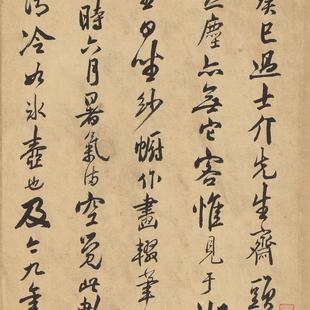 癸巳過士介先生齋頭
塵亦無它客惟見于
日坐紗幮作畫輟筆
時六月暑氣滿空覺此
清冷如冰壺也及今九年